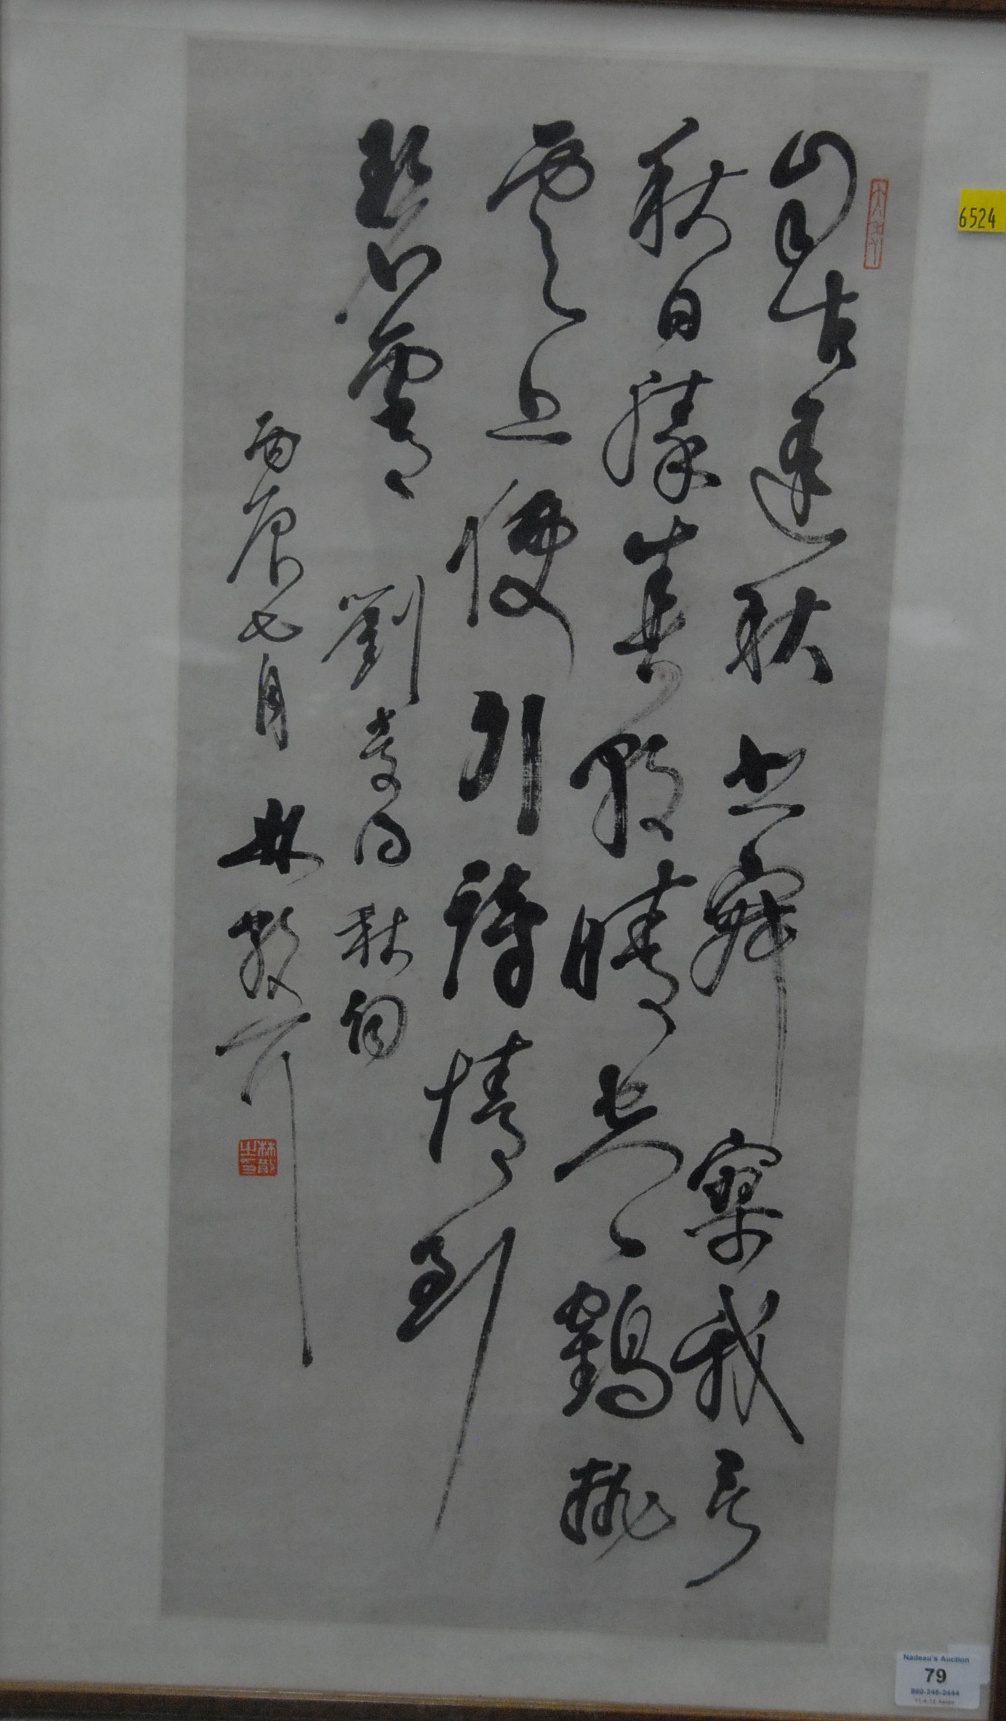 自古逢秋悲寂寥我言
秋日勝春朝晴空一鶴排
雲上便引詩情到
碧霄 劉夢得秋詞
丙辰七月 林散耳
林散之印
6524
Nadeau's Auction
79
860-246-2444